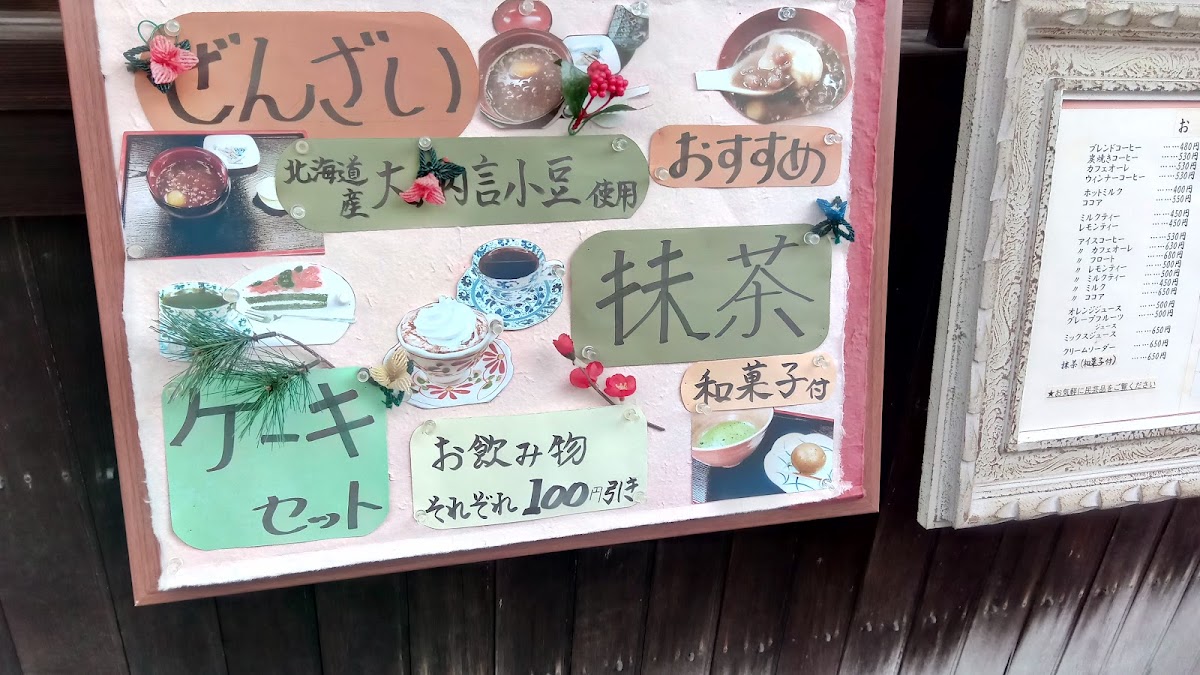 ぜんざい
北海道産 大納言小豆 使用
おすすめ
抹茶
和菓子付
ケーキ
セット
お飲み物
それぞれ100円引き
お
ブレンドコーヒー ……480円
炭焼きコーヒー ……530円
カフェオーレ ……530円
ウィンナーコーヒー ……530円
ホットミルク ……400円
ココア ……550円
ミルクティー ……450円
レモンティー ……450円
アイスコーヒー ……530円
〃 カフェオーレ ……630円
〃 フロート ……680円
〃 レモンティー ……500円
〃 ミルクティー ……500円
〃 ミルク ……450円
〃 ココア ……650円
オレンジジュース ……500円
グレープフルーツジュース ……500円
ミックスジュース ……650円
クリームソーダー ……650円
抹茶(和菓子付) ……650円
★お気軽に民芸品をご覧ください